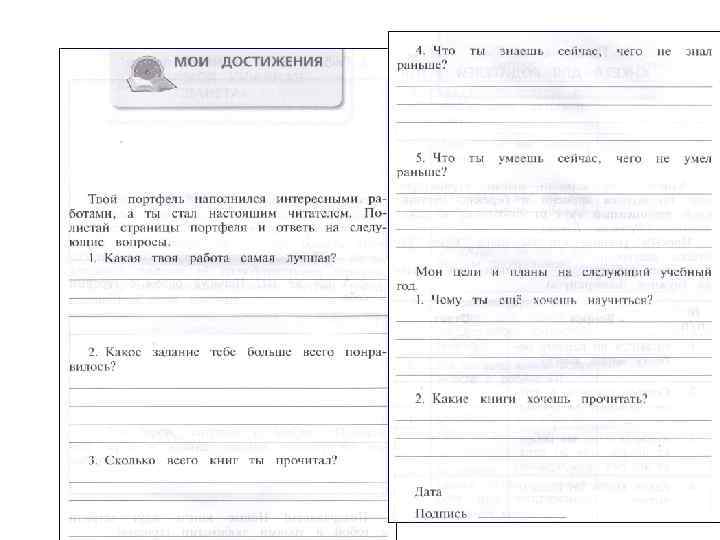 МОИ ДОСТИЖЕНИЯ
Твой портфель наполнился интересными ра-
ботами, а ты стал настоящим читателем. По-
листай страницы портфеля и ответь на следу-
ющие вопросы.
1. Какая твоя работа самая лучшая?
2. Какое задание тебе больше всего понра-
вилось?
3. Сколько всего книг ты прочитал?
4. Что ты знаешь сейчас, чего не знал
раньше?
5. Что ты умеешь сейчас, чего не умел
раньше?
Мои цели и планы на следующий учебный
год.
1. Чему ты ещё хочешь научиться?
2. Какие книги хочешь прочитать?
Дата
Подпись